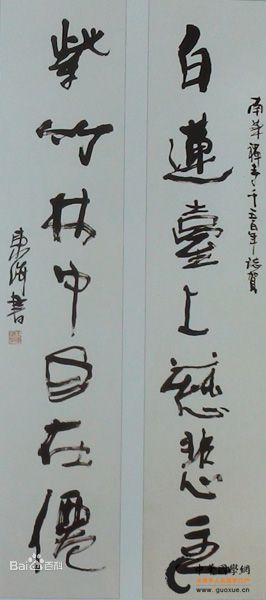 南華禪寺千五百年誌賀
白蓮臺上慈悲主
紫竹林中自在僊
東海書
Bai百科
中華國學網
www.guoxue.com